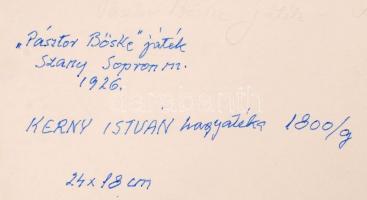 „Pásztor Böske" játék
Szany Sopron m.
1926.
KERNY ISTVÁN hagyatéka 1800/g
24x18 cm